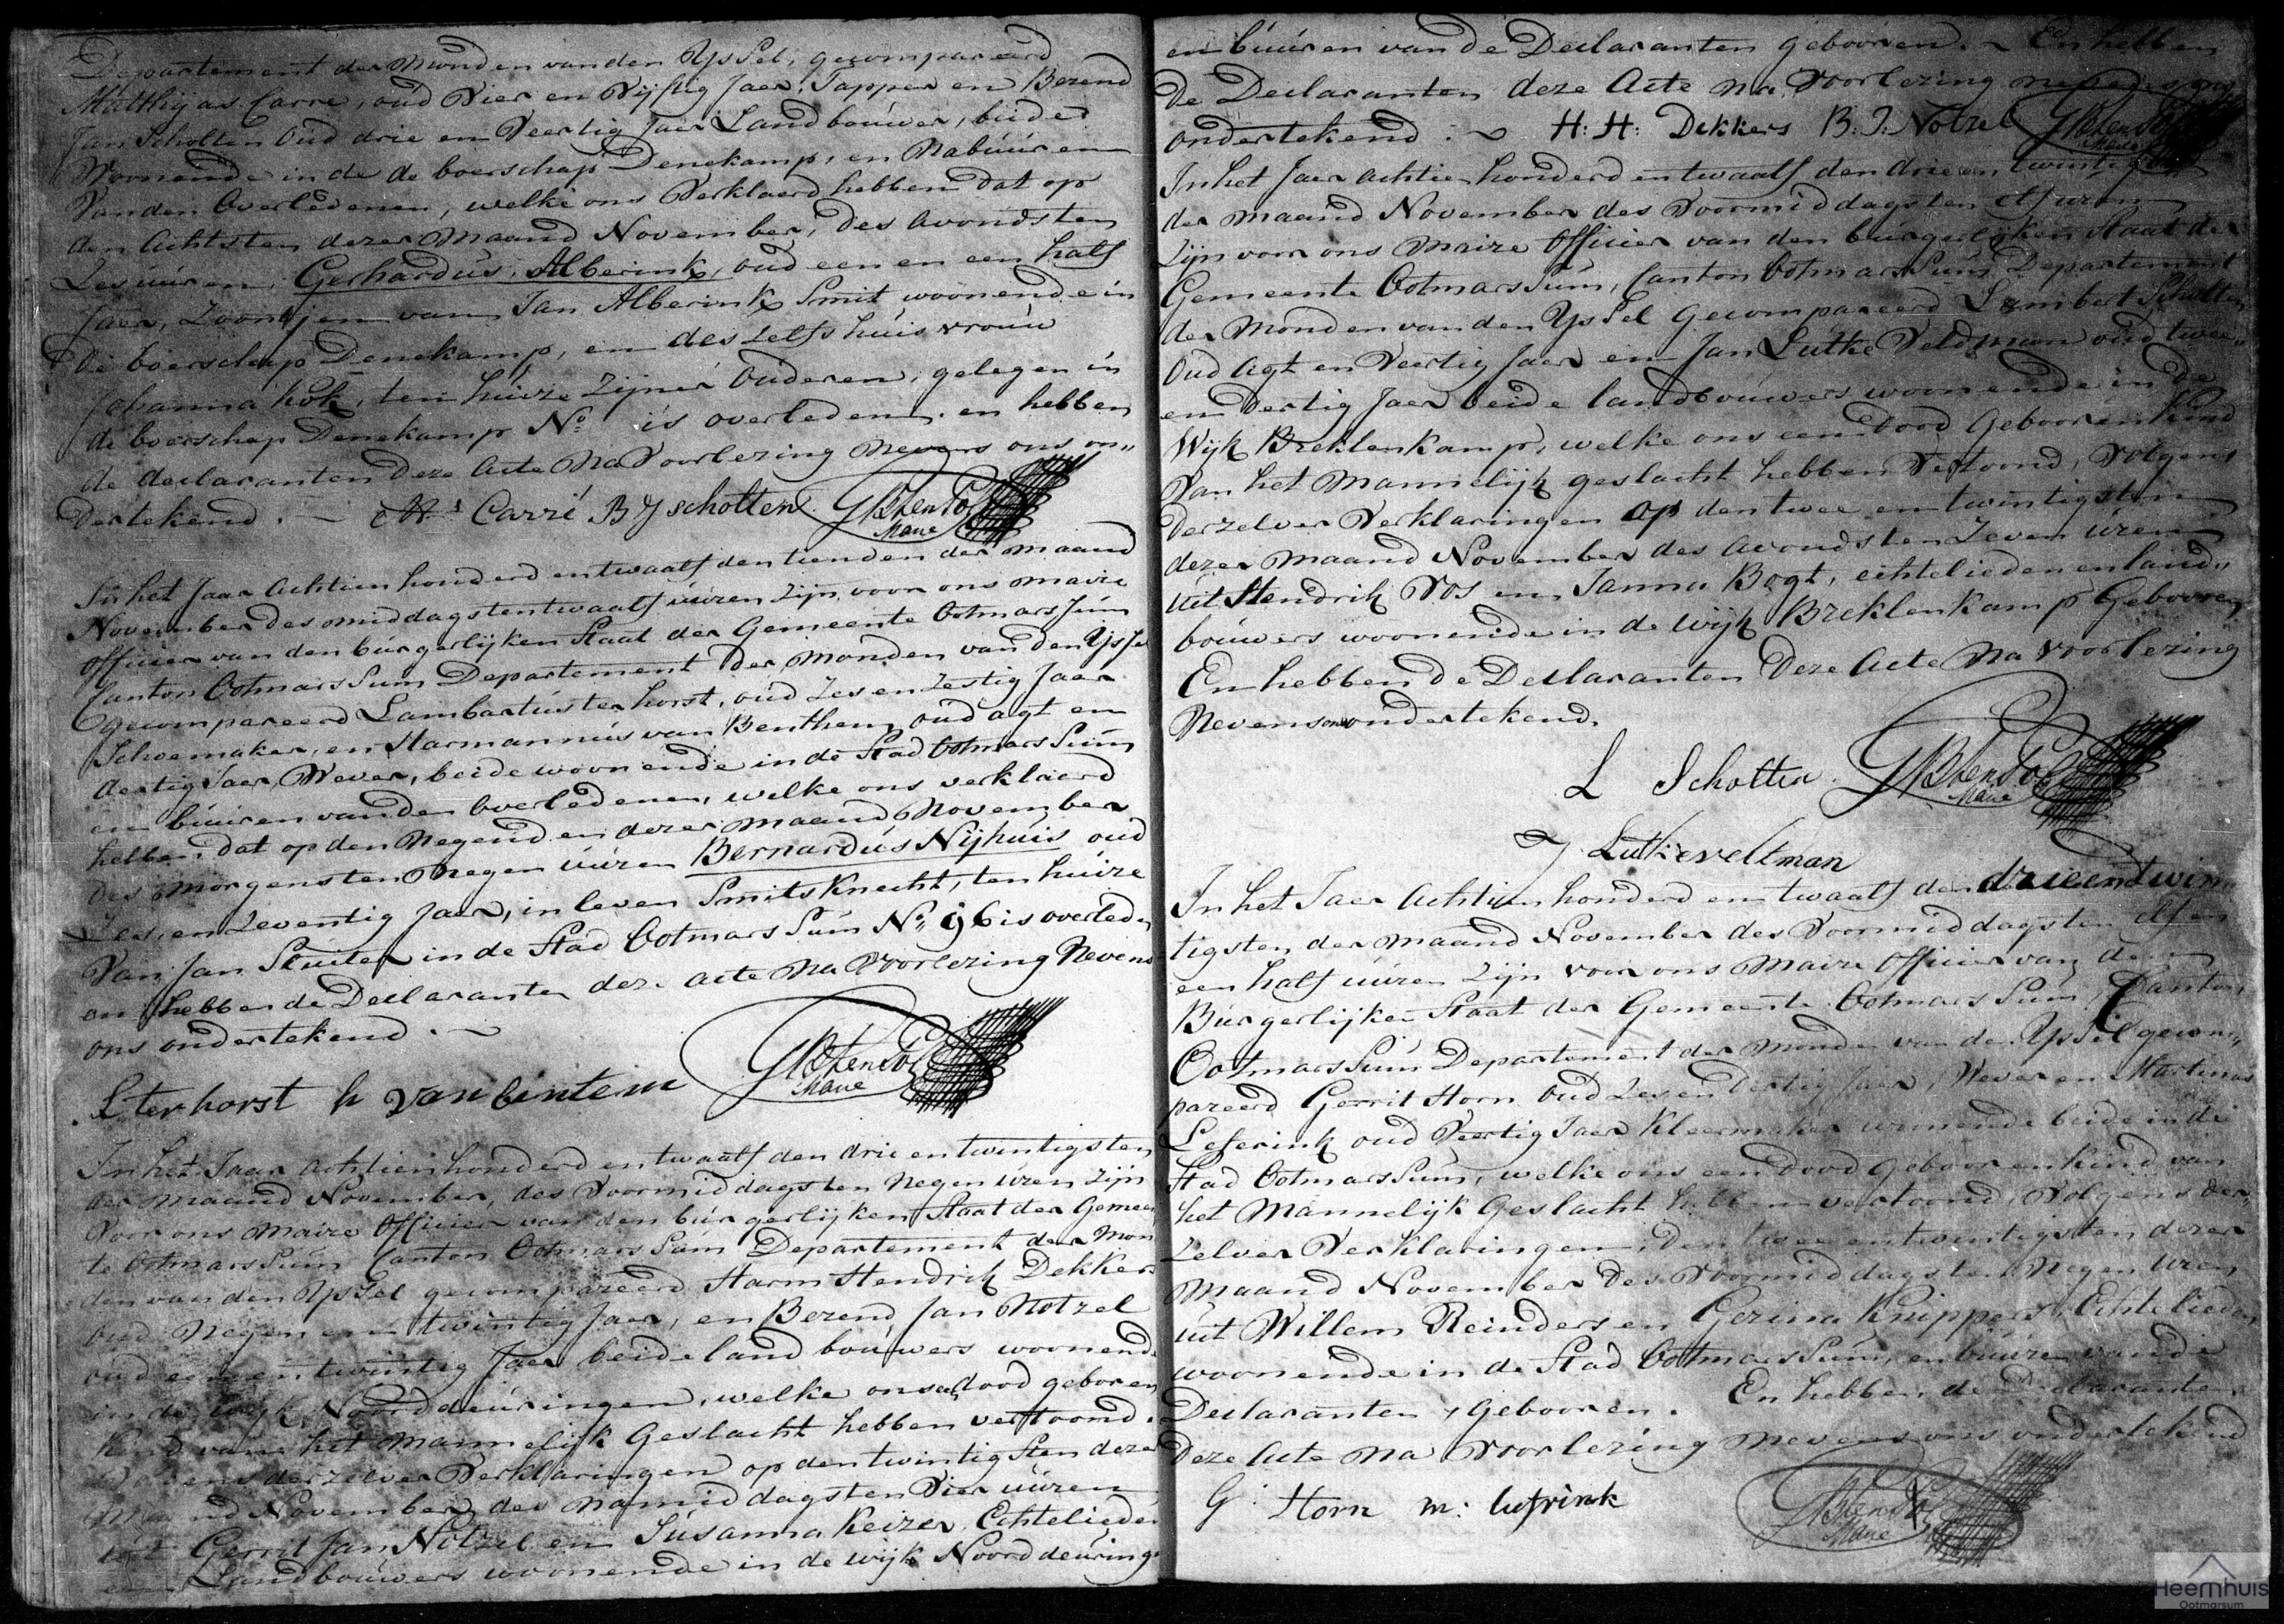 Departement der Monden van den Yssel, gecompareerd
Matthijas Carre, oud Vier en Vijftig Jaer, Tapper en Berend
Jan Scholten Oud drie en Veertig Jaer Landbouwer, beide
Woonende in de de boerschap Denekamp, en Nabuuren
Van den Overledenen, welke ons Verklaerd hebben dat op
den Achtsten dezer Maand November, des Avonds ten
Zes uuren, Gerhardus Alberink, oud een en een half
Jaer, Zoontjen van Jan Alberink Smit woonende in
de boerschap Denekamp, en deszelfs huisvrouw
Johanna Kok, ten huize Zijner Ouderen, gelegen in
de boerschap Denekamp No. is overleden. en hebben
de declaranten deze Acte Na Voorlezing Nevens ons on„
dertekend. ~ M: Carré B J Scholten GBtenPol
Maire
In het Jaar Achtien honderd en twaalf den tienden der Maand
November des middags ten twaalf uuren zijn voor ons Maire
Officier van den burgerlijken Staat der Gemeente Ootmarssum
Canton Ootmarssum Departement der Monden van den Yssel
gecompareerd Lambartus ter horst, oud Zes en Zestig Jaer
Schoemaker, en Harmannus van Benthem oud agt en
dertig Jaer, Wever, beide woonende in de Stad Ootmarssum
en buuren van den Overledenen, welke ons verklaerd
hebben dat op den Negenden dezer Maand November
des Morgens ten Negen Uuren Bernardus Nijhuis oud
Zes en Zeventig Jaer, in leven Smits Knecht, ten huize
Van Jan Sluiter in de Stad Ootmarssum No. 96 is overleden
en hebben de Declaranten deze acte Na Voorlezing Nevens
ons ondertekend. ~
L terhorst h van bentem GBtenPol
Maire
In het Jaar Achtien honderd en twaalf den drie en twintigsten
der Maand November, des Voormiddags ten Negen Uren zijn
Voor ons Maire Officier van den burgerlijken Staat der Gemeen
te Ootmarssum Canton Ootmarssum Departement der Mon
den van den Yssel gecompareerd Harm Hendrik Dekkers
oud Negen en twintig Jaer, en Berend Jan Notzel
oud een en twintig Jaer beide landbouwers woonende
in de wijk Noorddeuringen, welke ons een dood geboren
Kind van het Mannelijk Geslacht hebben vertoond.
Volgens derzelver Verklaringen op den twintigsten dezer
Maand November des Namiddags ten Vier uuren
uit Gerrit Jan Notzel en Susanna Keizer, Echtelieden
en Landbouwers woonende in de wijk Noorddeuringe
en buuren van de Declaranten gebooren. ~ En hebben
De Declaranten deze Acte Na Voorlezing nevens ons
ondertekend. ~ H: H: Dekkers B: J: Notzel GBtenPol
Maire
In het Jaer Achtien honderd en twaalf den drie en twintigsten
der Maand November des Voormiddags ten Elf uren
Zijn voor ons Maire Officier van den burgerlijken Staat der
Gemeente Ootmarssum, Canton Ootmarssum Departement
der Monden van den Yssel Gecompareerd Lambert Scholten
Oud Agt en Veertig Jaer en Jan Lutke Veldman oud twee„
en Dertig Jaer beide landbouwers woonende in de
Wijk Breklenkamp, welke ons een dood Gebooren Kind
Van het Mannelijk geslacht hebben Vertoond, Volgens
Derzelver Verklaringen op den twee en twintigsten
dezer Maand November des Avonds ten Zeven Uren
Uit Hendrik Vos en Janna Bogt, echtelieden en land„
bouwers woonende in de wijk Breklenkamp Gebooren,
En hebben de Declaranten Deze Acte Na Voorlezing
Nevens ons ondertekend.
L Scholten GBtenPol
Maire
J Lutkeveltman
In het Jaer Achtien honderd en twaalf den drieentwin
tigsten der Maand November des Voormiddags ten elf en
een half uuren zijn voor ons Maire Officier van den
Burgerlijken Staat der Gemeente Ootmarssum, Canton
Ootmarssum Departement der Monden van den Yssel gecom„
pareerd Gerrit Horn Oud Zes en Dertig Jaer, Wever en Martinus
Leferink oud Veertig Jaer Kleermaker wonende beide in de
Stad Ootmarssum, welke ons een dood Gebooren Kind van
het Mannelijk Geslacht hebben vertoond, Volgens der„
zelver Verklaringen, den twee en twintigsten dezer
Maand November Des Voormiddags ten Negen Uren
uit Willem Reinders en Gezina Knippers, Echtelieden
woonende in de Stad Ootmarssum, en buuren van de
Declaranten, Gebooren. En hebben de Declaranten
Deze Acte Na Voorlezing Nevens ons ondertekend
G: Horn m: lefrink GBtenPol
Maire
Heemhuis
Ootmarsum